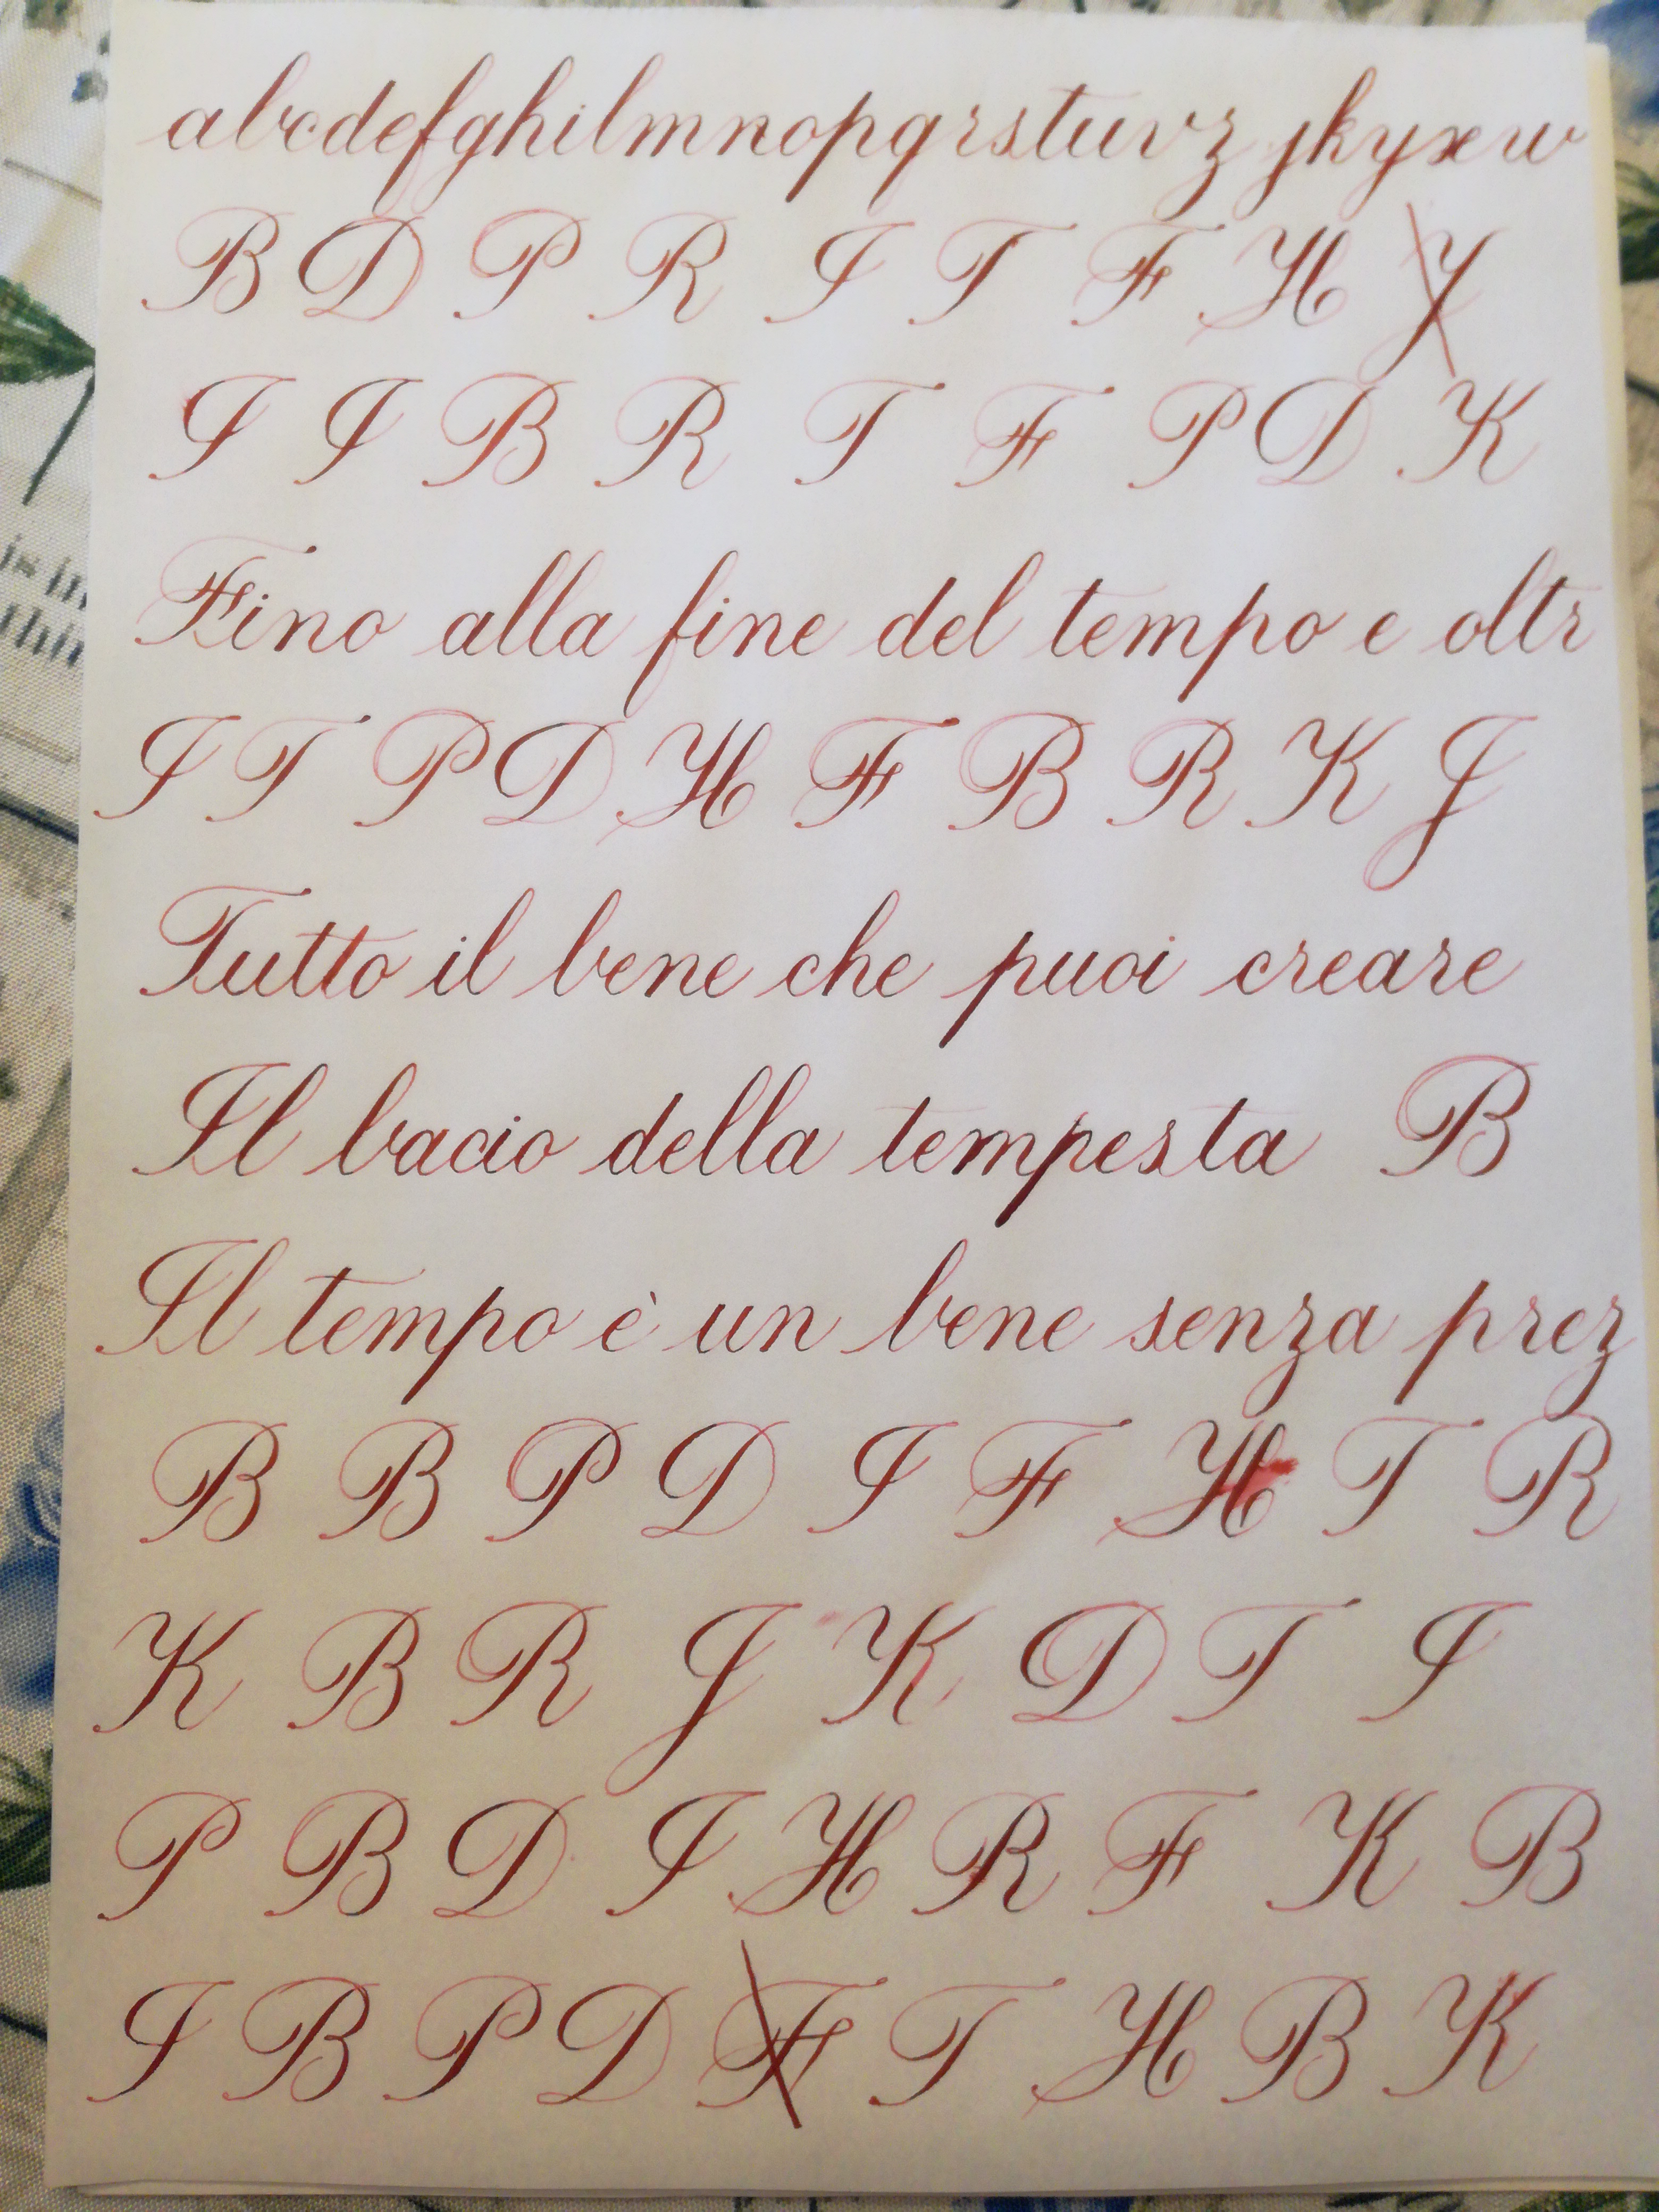 abcdefghilmnopqrstuvz jkyxw
B D P R I T F H J
I I B R T F P D K
Fino alla fine del tempo e oltr
I T P D H F B R K J
Tutto il bene che puoi creare
Il bacio della tempesta B
Il tempo è un bene senza prez
B B P D I F H T R
K B R J K D T I
P B D I H R F K B
I B P D F T H B K